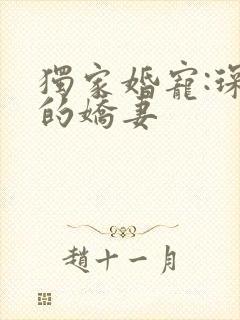 獨家婚寵:琛
的嬌妻
趙十一月